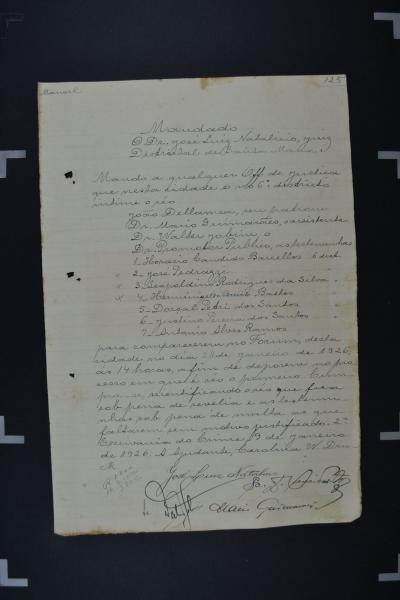 125
Manoel
Mandado
O Dr. José Luiz Natalicio, juiz
Districtal de Santa Maria.
Mando a qualquer Off. de justiça
que nesta cidade e no 6º districto
intime o réo
João Dellamea, seu patrono
Dr. Mario Guimarães, assistente
Dr. Walter Jobim, o
Dr. Promotor Publico, as testemunhas
1- Horacio Candido Barcellos 6 dist.
x 2- José Pedrazzi
x 3- Leopoldino Rodrigues da Silva
x 4- Bastos
5- Dorval Petri dos Santos
6- Justino Pereira dos Santos
7- Antonio Alves Ramos
para comparecerem no Forum, desta
cidade no dia de janeiro de 1926,
ás 14 horas, a fim de deporem no pro
cesso em que é réo o primeiro. Cum
pra-se, scientificando o réo que fica
sob pena de revelia e as testemu
nhas sob pena de multa as que
faltarem sem motivo justificado. 2ª
Escrivania do Crime, de janeiro
de 1926. A Ajudante, Carolina W. Dru
ck
José Luiz Natalicio
Mario Guimarães